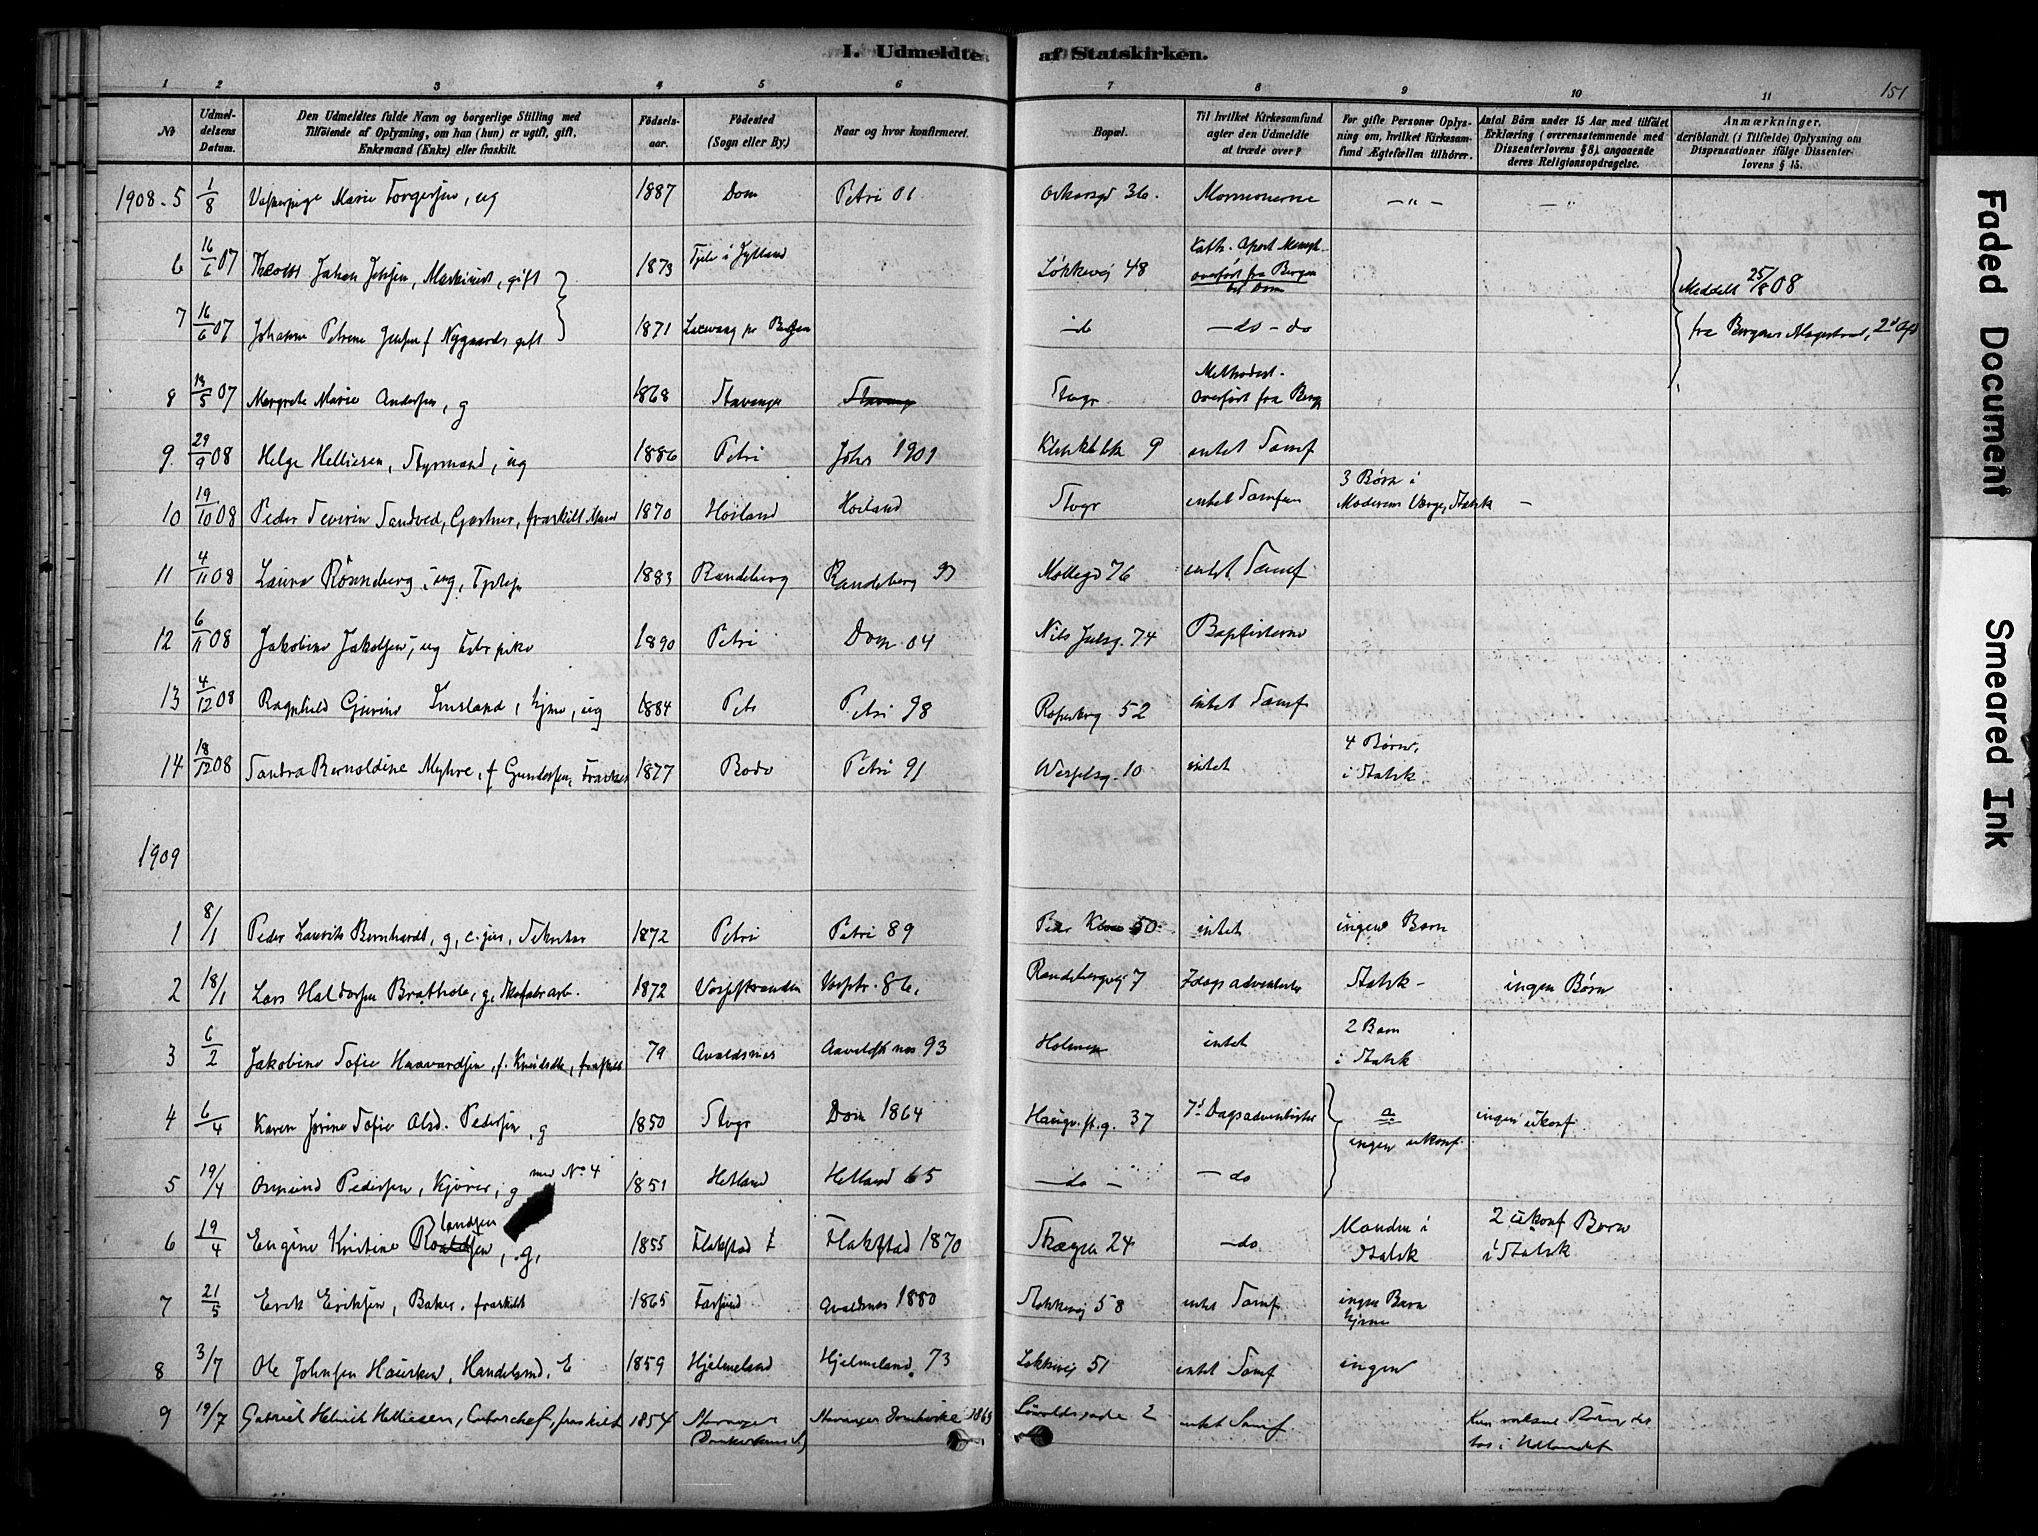 I. Udmeldte af Statskirken.
151
1 2 3 4 5 6 7 8 9 10 11
No
Udmeldelsens Datum.
Den Udmeldtes fulde Navn og borgerlige Stilling med
Tilföiende af Oplysning, om han (hun) er ugift, gift,
Enkemand (Enke) eller fraskilt.
Födselsaar.
Födested
(Sogn eller By.)
Naar og hvor konfirmeret.
Bopæl.
Til hvilket Kirkesamfund
agter den Udmeldte
at træde over?
For gifte Personer Oplysning om, hvilket Kirkesamfund Ægtefællen tilhörer.
Antal Börn under 15 Aar med tilföiet
Erklæring (overensstemmende med
Dissenterlovens § 8), angaaende
deres Religionsopdragelse.
Anmærkninger,
deriblandt (i Tilfælde) Oplysning om
Dispensationer ifölge Dissenterlovens § 15.
1908 - 5 1/8 Marie Torgersen, ug 1887 Dom Petri 01 Oskarsgd 36. Mormonerne — " — — "
6 16/6 07 Johan Jensen, Maskinist, gift 1873 i Jylland Løkkevej 48 Kath. apost. overført fra Bergen Meddelt 25/8 08
7 16/6 07 Johanne Petrine Jensen f Nygaards gift 1871 pr Bergen — do — do — do fra Bergens Magistrat, 2d Afd
8 13/5 07 Margrete Marie Andersen, g 1868 Stavanger Stvgr Methodist. overført fra Berg
9. 29/9 08 Helge Helliesen, Styrmand, ug 1886 Petri Johs 1901 9 intet Samf
10 19/10 08 Peder Severin Sandved, Gartner, fraskilt Mand 1870 Höiland Höiland Stvgr intet Samfun 3 Børn i Moderens Værge, Statsk —
11 4/11 08 Laura Rönneberg, ug, 1883 Randeberg Randeberg 97 Møllegd 76 intet Samf
12 6/11 08 Jakobine Jakobsen, ug Fabr pike 1890 Petri Dom 04 Nils Juelsg. 74 Baptisterne
13 4/12 08 Ragnhild Gurine Imsland, ug 1884 Petr Petri 98 52 intet Samf
14 18/12 08 Sandra Bernoldine Myhre, f Gundersen, Fraskilt 1877 Bodø Petri 91 Wesselsg. 10 intet 4 Børn, i Statsk.
1909
1 8/1 Peder Laurits Bernhardt, g, c. jur, Sekretær 1872 Petri Petri 89 50 intet ingen Barn
2 18/1 Lars Haldorsen Brathole, g, Skofabrarb. 1872 Vossestranden Vosstr. 86. Randebergvej 7 7dags adventister Statsk — ingen Børn
3 6/2 Jakobine Sofie Haavardsen, f. Knudsdtr, fraskilt 79 Avaldsnes Aavaldsnes 93 Holmen intet 2 Barn i Statsk
4 6/4 Karen Jørine Sofie Alsd. Pedersen, g 1850 Stvgr Dom 1864 Haugv. st. g. 37 7d Dagsadventister ingen ukonf. ingen ukonf
5 19/4 Osmund Pedersen, Kjører, g med No 4 1851 Hetland Hetland 65 — do — — do
6 19/4 Eugine Kristine Rolandsen, g, 1855 Flakstad Flakstad 1870 Skagen 24 — do Manden i Statsk 2 ukonf Børn i Statsk
7 21/5 Erik Eriksen, Baker, fraskilt 1865 Farsund Avaldsnes 1880 Løkkevej 58 intet Samf. ingen Barn hjeme
8 3/7 Ole Johnsen Hausken, Handelsmd, E 1859 Hjelmeland Hjelmeland. 73 Løkkevej 51 intet Samf ingen
9 19/7 Gabriel Helmich Helliesen, Contorchef, fraskilt 1854 Stavanger (Domkirkens S.) Stavanger Domkirke 1869 Løvoldsgade 2 intet Samf. Kun voksne Børn, der bor i Udlandet
Faded Document
Smeared Ink